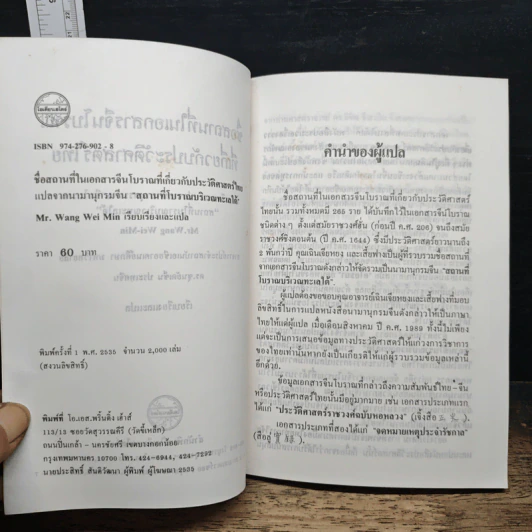 ISBN 974-276-902-8
ชื่อสถานที่ในเอกสารจีนโบราณที่เกี่ยวกับประวัติศาสตร์ไทย
แปลจากนามานุกรมจีน: "สถานที่โบราณบริเวณทะเลใต้"
Mr. Wang Wei Min เรียบเรียงและแปล
ราคา 60 บาท
พิมพ์ครั้งที่ 1 พ.ศ. 2535 จำนวน 2,000 เล่ม
(สงวนลิขสิทธิ์)
พิมพ์ที่ โอ.เอส.พริ้นติ้ง เฮ้าส์
113/13 ซอยวัดสุวรรณคีรี (วัดขี้เหล็ก)
ถนนปิ่นเกล้า - นครชัยศรี เขตบางกอกน้อย
กรุงเทพมหานคร 10700 โทร. 424-6944, 424-7292
นายประสิทธิ์ สันติวัฒนา ผู้พิมพ์ ผู้โฆษณา 2535
คำนำของผู้แปล
ชื่อสถานที่ในเอกสารจีนโบราณที่เกี่ยวกับประวัติศาสตร์
ไทยนั้น รวมทั้งหมดมี 265 ราย ได้บันทึกไว้ในเอกสารจีนโบราณ
ชนิดต่าง ๆ ตั้งแต่สมัยราชวงศ์ฮั่น (ก่อนปี ค.ศ. 206) จนถึงสมัย
ราชวงศ์ชิงตอนต้น (ปี ค.ศ. 1644) ซึ่งมีประวัติศาสตร์ยาวนานถึง
2 พันกว่าปี คุณเฉินเจียหยง และเสี้ยฟางเป็นผู้ที่รวบรวมชื่อสถานที่
จากเอกสารจีนโบราณดังกล่าวให้จัดรวมเป็นนามานุกรมจีน "สถานที่
โบราณบริเวณทะเลใต้"
ผู้แปลต้องขอขอบคุณอาจารย์เฉินเจียหยงและเสี้ยฟางที่มอบ
ลิขสิทธิ์ในการแปลหนังสือนามานุกรมจีนดังกล่าวให้เป็นภาษา
ไทยให้แด่ผู้แปล เมื่อเดือนสิงหาคม ปี ค.ศ. 1989 ทั้งนี้ไม่เพียง
แต่จะเป็นการเสนอข้อมูลทางประวัติศาสตร์ให้แก่วงการวิชาการ
ของไทยเท่านั้นหากยังเป็นเกียรติให้แก่ผู้รวบรวมข้อมูลเหล่านี้
อีกด้วย
ข้อมูลเอกสารจีนโบราณที่กล่าวถึงความสัมพันธ์ไทย-จีน
หรือประวัติศาสตร์ไทยนั้นมีอยู่มากมาย เช่น เอกสารประเภทแรก
ได้แก่ "ประวัติศาสตร์ราชวงศ์ฉบับหอหลวง"
เอกสารประเภทที่สองได้แก่ "จดหมายเหตุประจำรัชกาล"